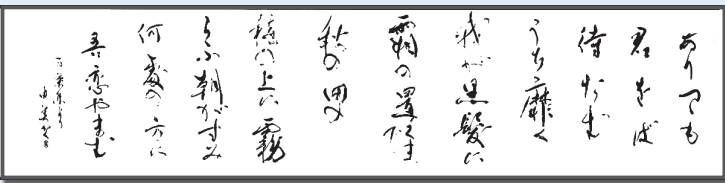 ありつゝも
君をば
待たむ
うち靡く
我が黒髪に
霜の置くまで
秋の田の
穂の上に霧
らふ朝がすみ
何處の方に
吾恋やまむ
万葉集より